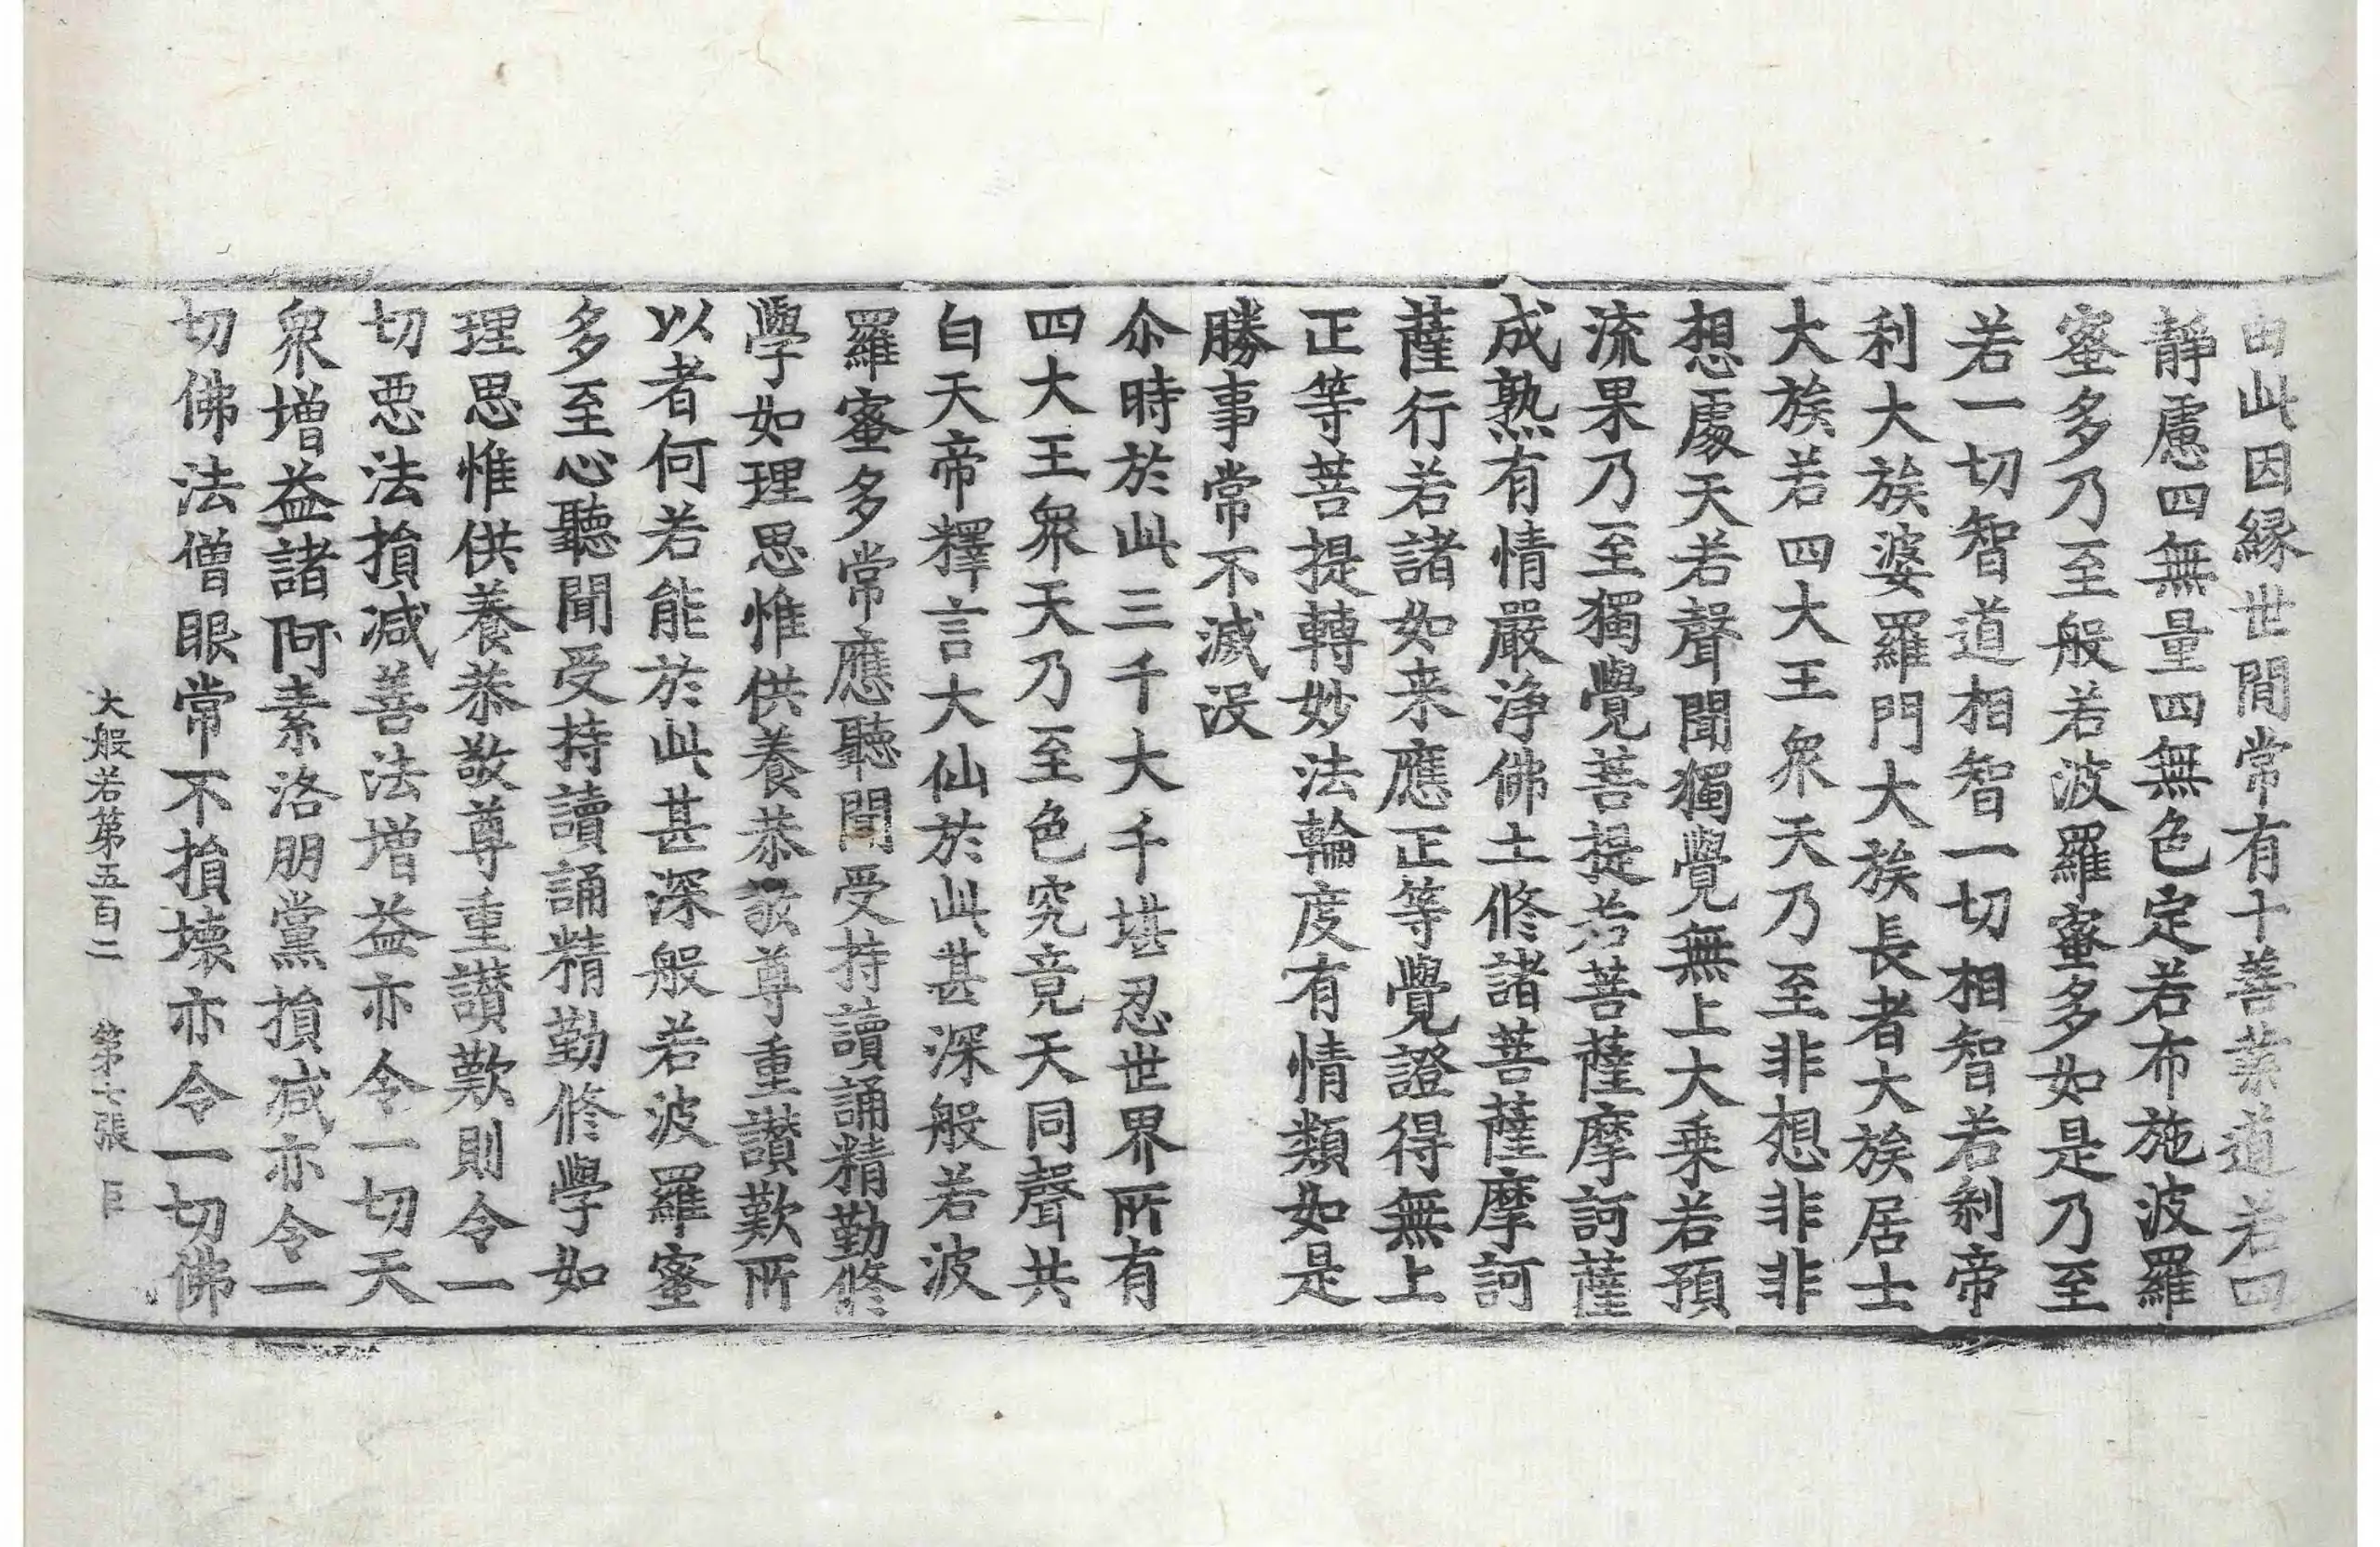 由此因緣世間常有十善業道若四
靜慮四無量四無色定若布施波羅
蜜多乃至般若波羅蜜多如是乃至
若一切智道相智一切相智若刹帝
利大族婆羅門大族長者大族居士
大族若四大王衆天乃至非想非非
想處天若聲聞獨覺無上大乗若預
流果乃至獨覺菩提若菩薩摩訶薩
成熟有情嚴浄佛土修諸菩薩摩訶
薩行若諸如来應正等覺證得無上
正等菩提轉妙法輪度有情類如是
勝事常不滅没
尒時於此三千大千堪忍世界所有
四大王衆天乃至色究竟天同聲共
白天帝釋言大仙於此甚深般若波
羅蜜多常應聽聞受持讀誦精勤修
學如理思惟供養恭敬尊重讃歎所
以者何若能於此甚深般若波羅蜜
多至心聽聞受持讀誦精勤修學如
理思惟供養恭敬尊重讃歎則令一
切惡法損减善法增益亦令一切天
衆增益諸阿素洛朋黨損减亦令一
切佛法僧眼常不損壊亦令一切佛
大般若第五百二 第七張 臣